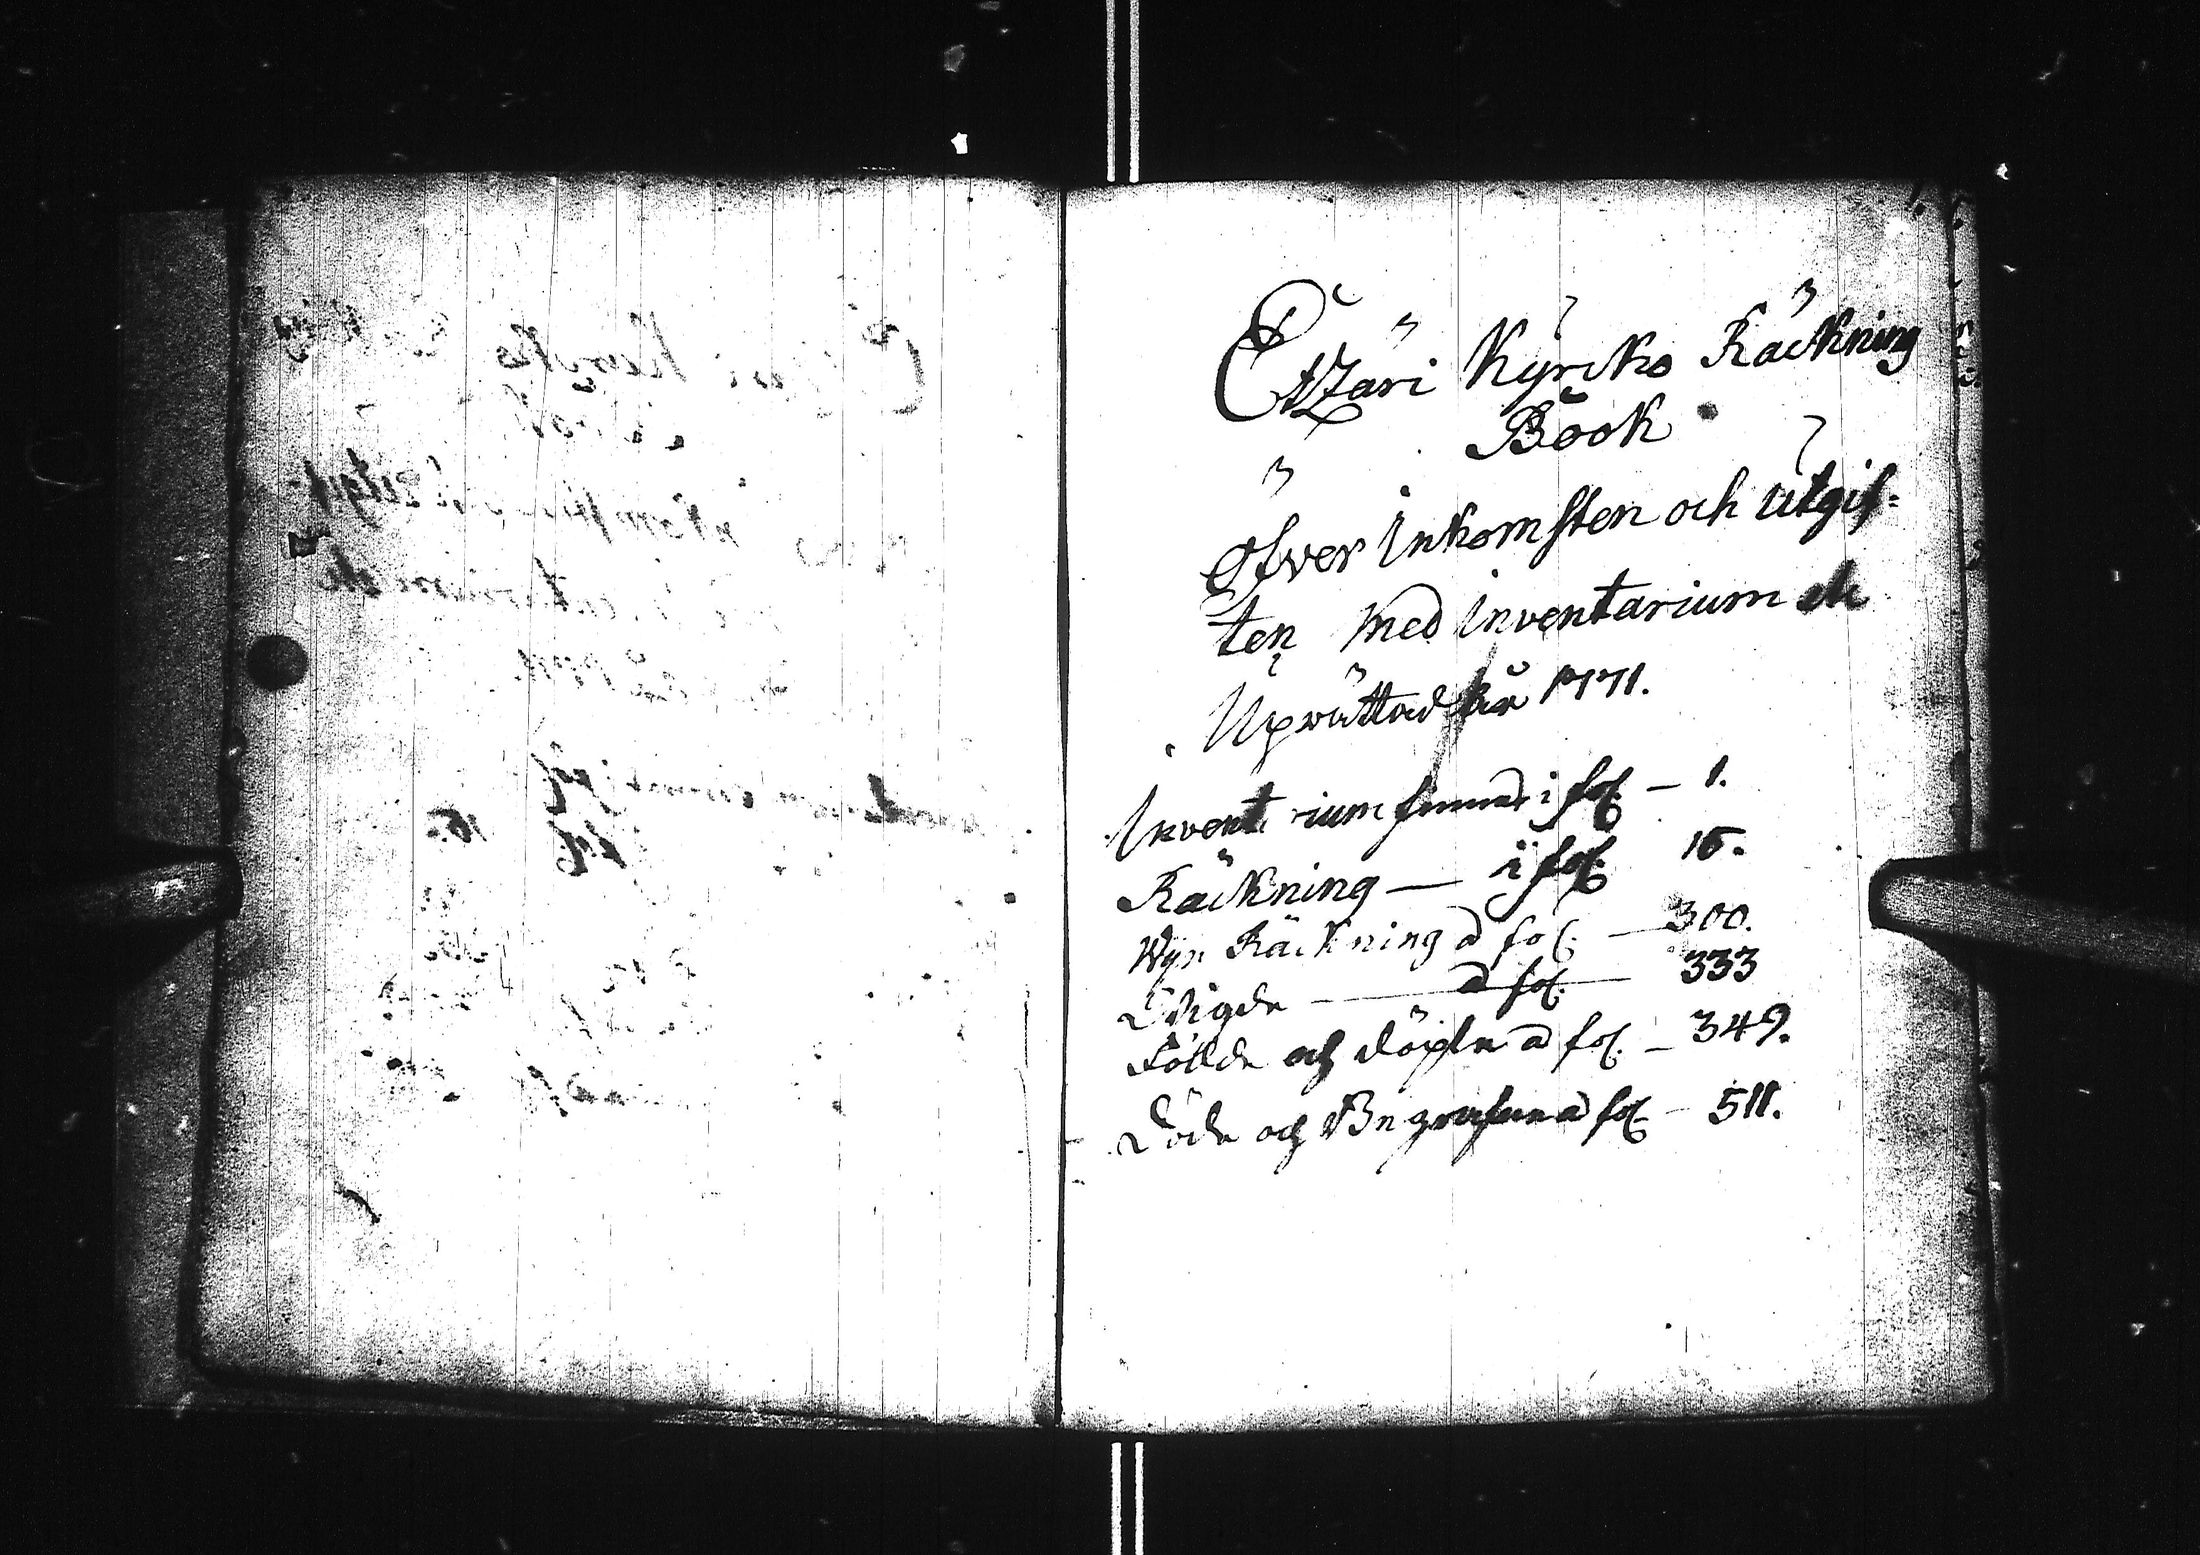 Etzäri Kyrcko Räckning
Book
öfver Inkomsten och Utgif-
ten med Inventarium etc
Uprättad åhr 1771.
Inventarium finnes i fol. — 1.
Räckning — i fol. 15.
Wijn Räckning a fol. — 300.
Wigde — a fol. — 333
Födde och döpte a fol. — 349.
Döde och Begrafne a fol. — 511.